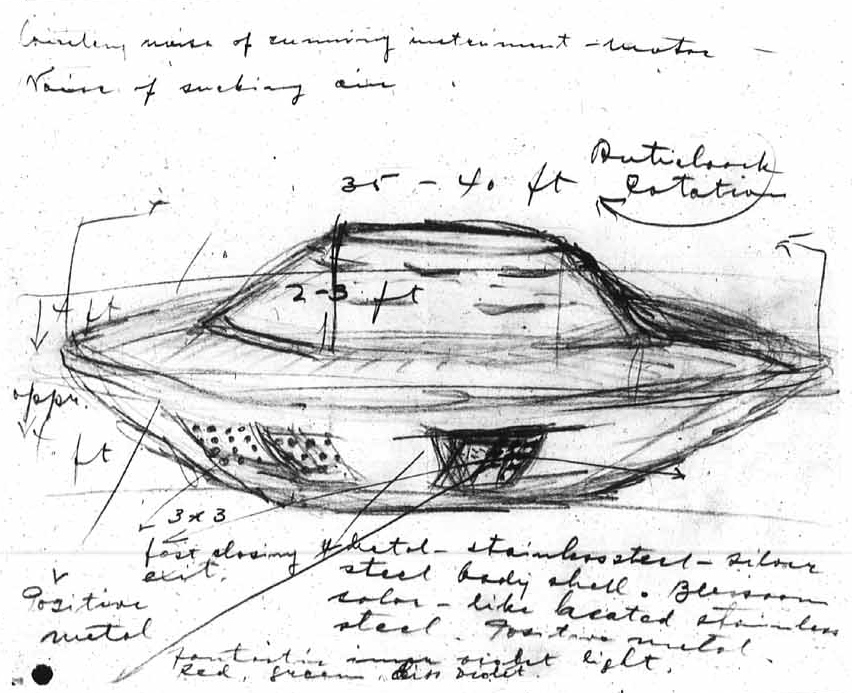 noise of running instrument - motor -
Noise of sucking air
Anticlock
35 - 40 ft
Rotation
2-3 ft
4 ft
appr.
4 ft
3 x 3
fast closing
exit.
Metal - stainlessteel - silver
steel body shell.
color - like heated stainless
steel. Positive metal.
Positive
metal
fantastic inner violet light.
Red, green, violet.